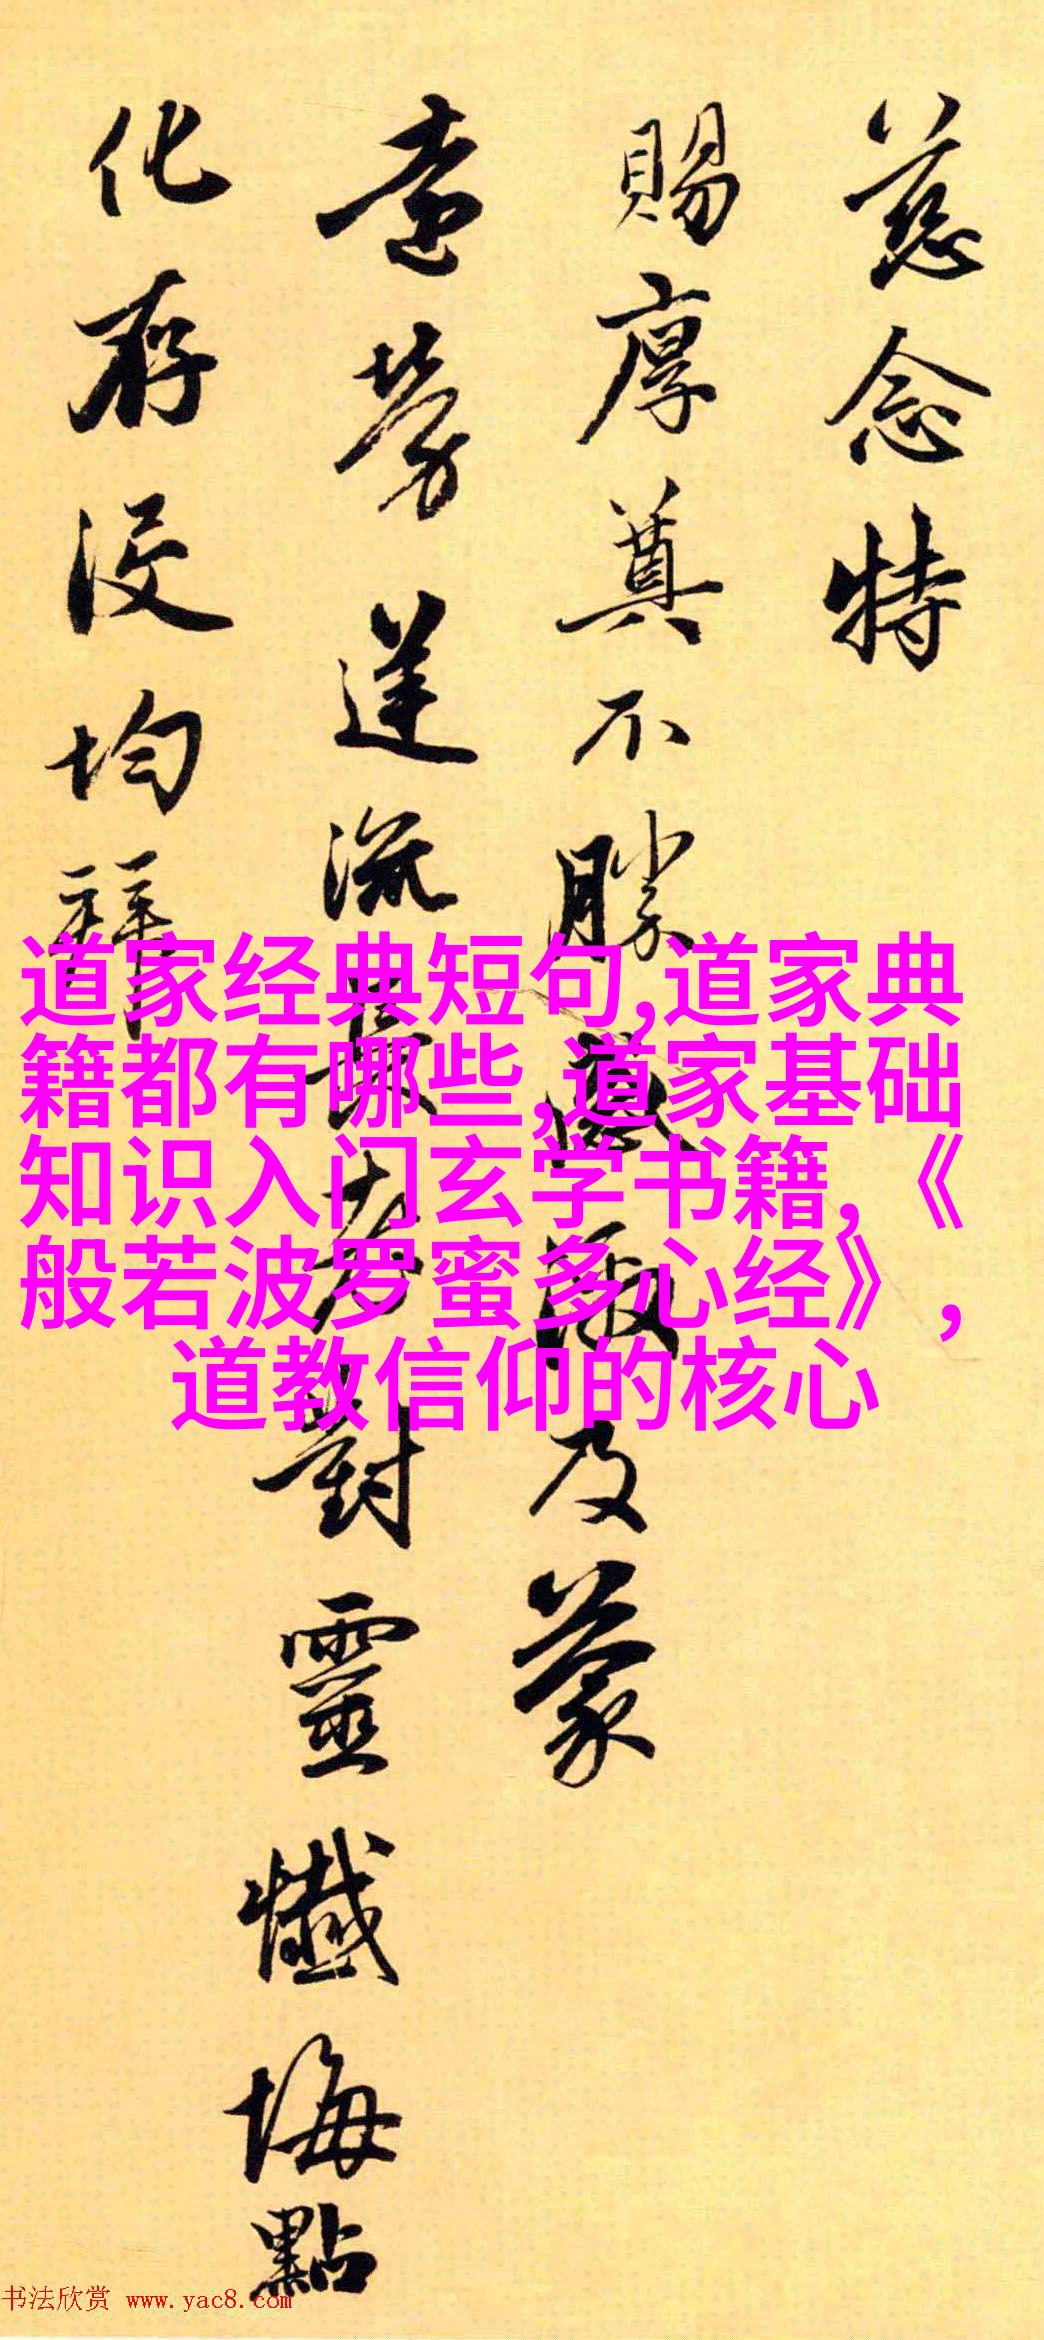 慈念特
賜厚奠不勝感激及蒙
勞流長老對靈懺悔點
化存没均拜
道家经典短句,道家典
籍都有哪些,道家基础
知识入门玄学书籍,《
般若波罗蜜多心经》,
道教信仰的核心
书法欣赏 www.yac8.com